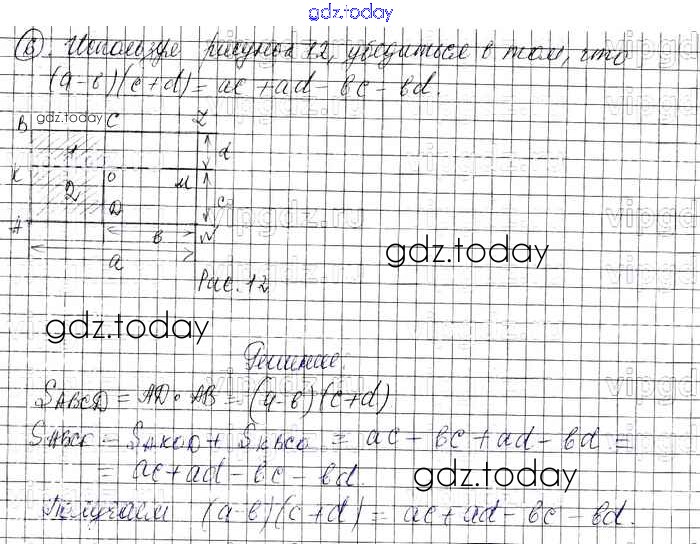 gdz.today
6. Используя рисунок 12, убедиться в том, что
(a-b)(c+d) = ac + ad - bc - bd.
B gdz.today C Z
1 d
K O M
2 c
A D N
b
a
Рис. 12
gdz.today
gdz.today
Решение.
S ABCD = AD · AB = (a-b)(c+d)
S ABCD = S AKOD + S KBCO = ac - bc + ad - bd =
= ac + ad - bc - bd.
gdz.today
Получаем (a-b)(c+d) = ac + ad - bc - bd.